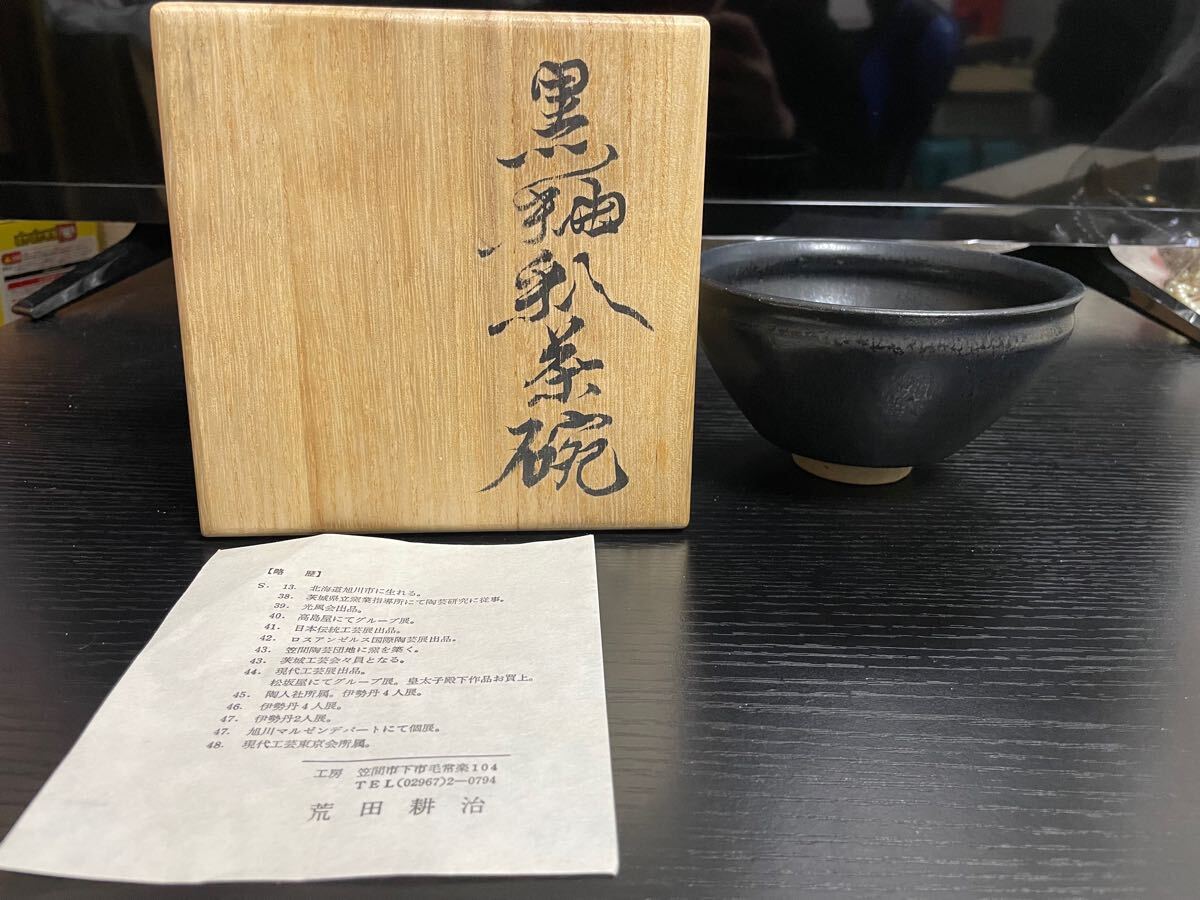 黒釉彩茶碗
【略 歴】
S. 13. 北海道旭川市に生れる。
38. 茨城県立窯業指導所にて陶芸研究に従事。
39. 光風会出品。
40. 高島屋にてグループ展。
41. 日本伝統工芸展出品。
42. ロスアンゼルス国際陶芸展出品。
43. 笠間陶芸団地に窯を築く。
43. 茨城工芸会々員となる。
44. 現代工芸展出品。
松坂屋にてグループ展。皇太子殿下作品お買上。
45. 陶人社所属。伊勢丹4人展。
46. 伊勢丹4人展。
47. 伊勢丹2人展。
47. 旭川マルゼンデパートにて個展。
48. 現代工芸東京会所属。
工房 笠間市下市毛常楽104
TEL(02967)2―0794
荒田耕治